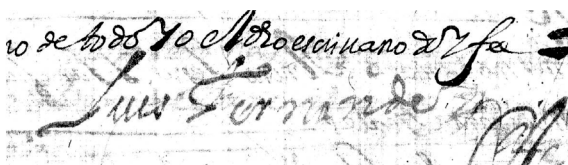 no de todo Yo el dho escriuano doy fee
Luis Fernandez